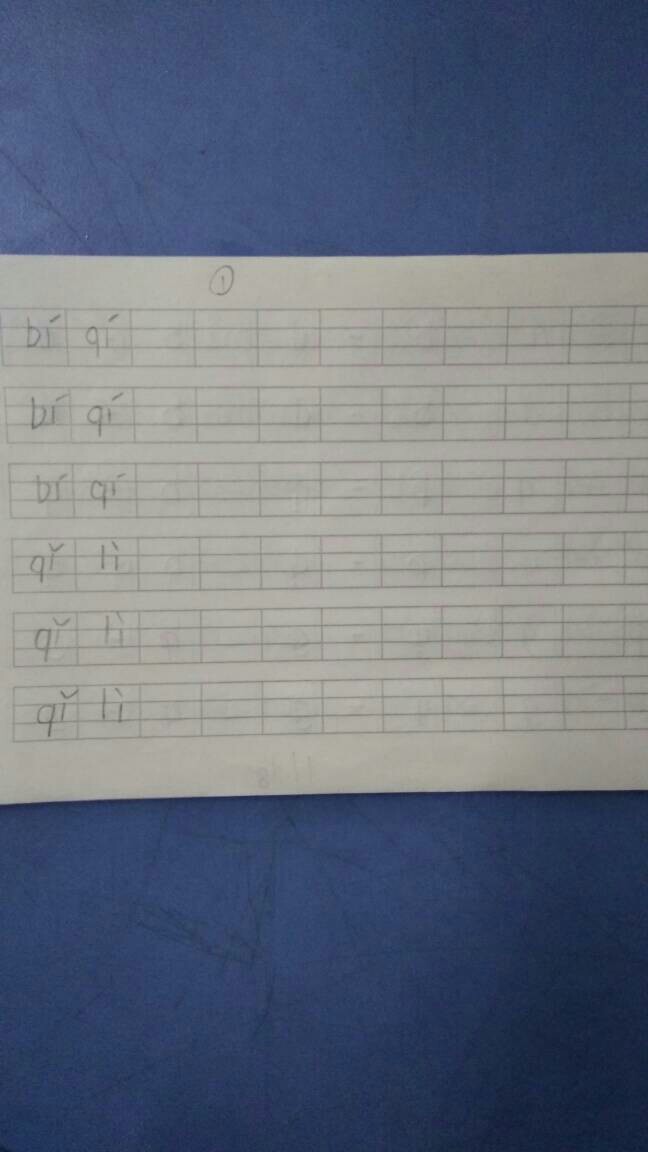 ①
bí qí
bí qí
bí qí
qǐ lì
qǐ lì
qǐ lì